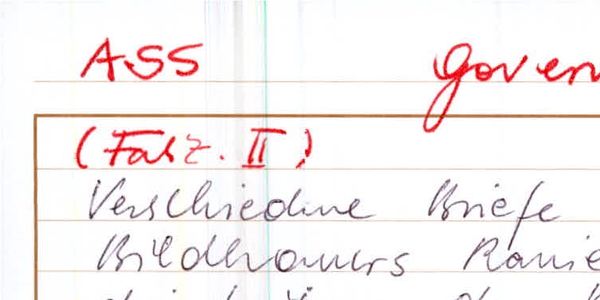 ASS Govern
(Fasz. II)
Verschiedene Briefe
Bildhauers Ranie